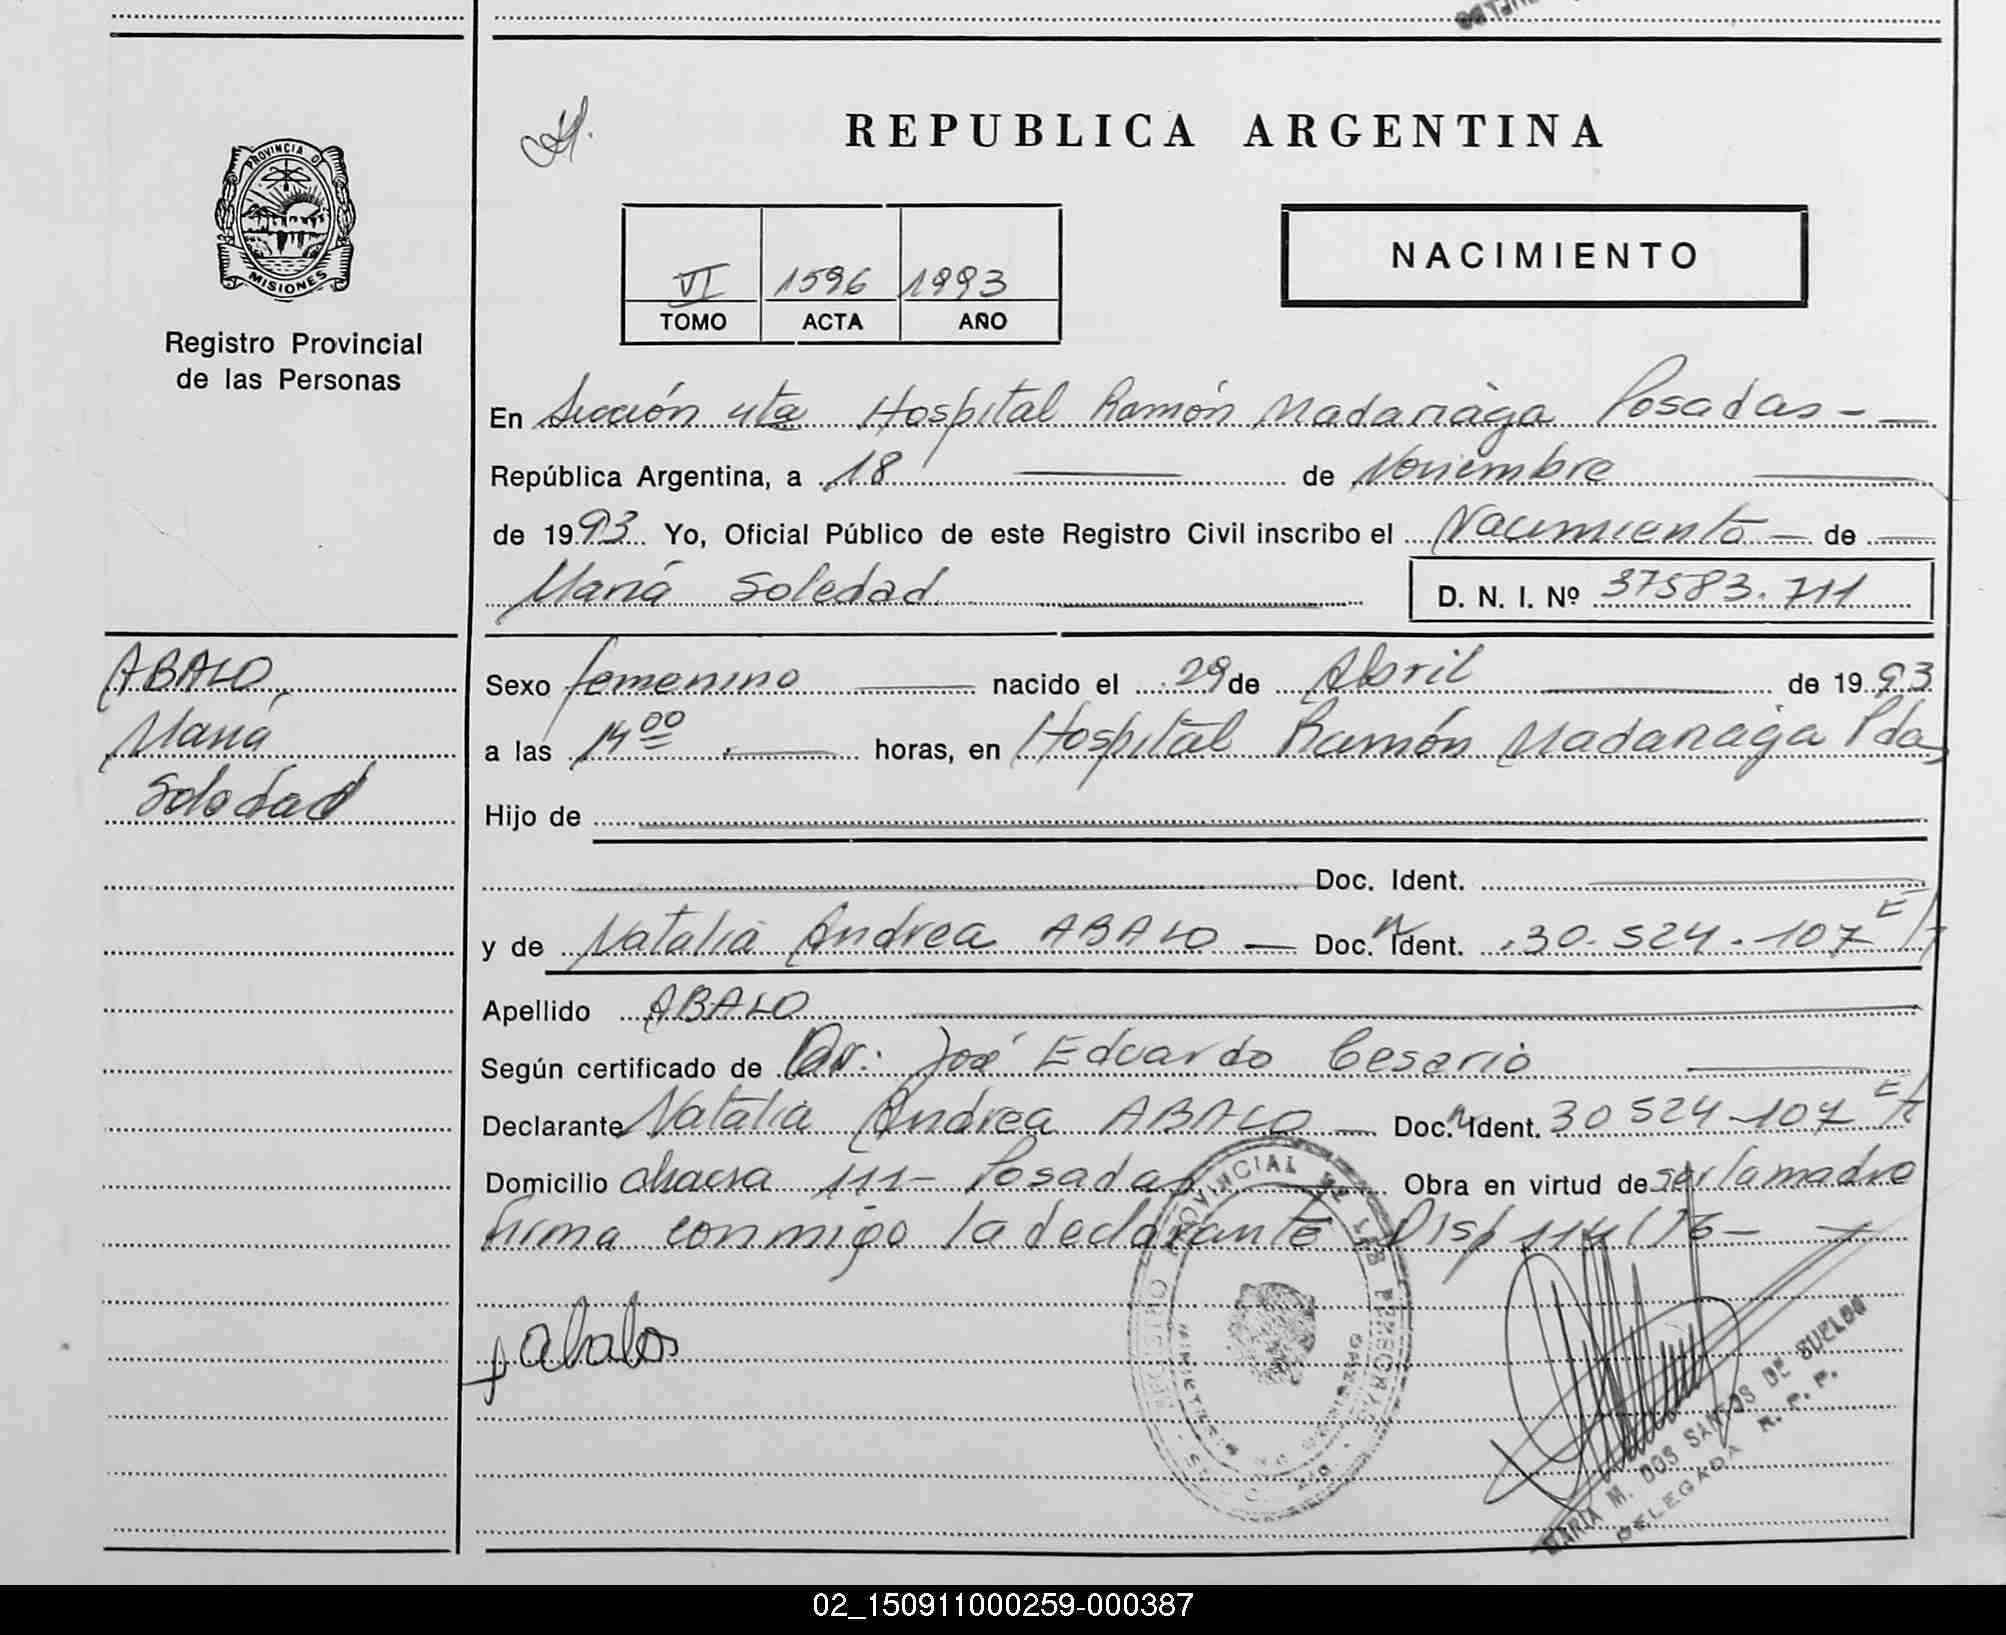 REPUBLICA ARGENTINA
PROVINCIA D MISIONES
Registro Provincial
de las Personas
VI 1596 1993
TOMO ACTA AÑO
NACIMIENTO
En Sección 4ta Hospital Ramón Madariaga Posadas - —
República Argentina, a 18 — de Noviembre —
de 1993 Yo, Oficial Público de este Registro Civil inscribo el Nacimiento — de —
María Soledad — D. N. I. Nº 37583.711
ABALO
María
Soledad
Sexo femenino — nacido el 29 de Abril — de 1993
a las 14 00 — horas, en Hospital Ramón Madariaga Pdas
Hijo de —
— Doc. Ident. —
y de Natalia Andrea ABALO — Doc. Ident. 30.524.107
Apellido ABALO —
Según certificado de Dr. José Eduardo Cesario —
Declarante Natalia Andrea ABALO — Doc. Ident. 30 524 107
Domicilio chacra 111 - Posadas — Obra en virtud de ser la madre
firma conmigo la declarante Disp
REGISTRO PROVINCIAL DE LAS PERSONAS
Abalos
MARIA M. DOS SANTOS DE SUELDO
DELEGADA R. P. P.
02_150911000259-000387